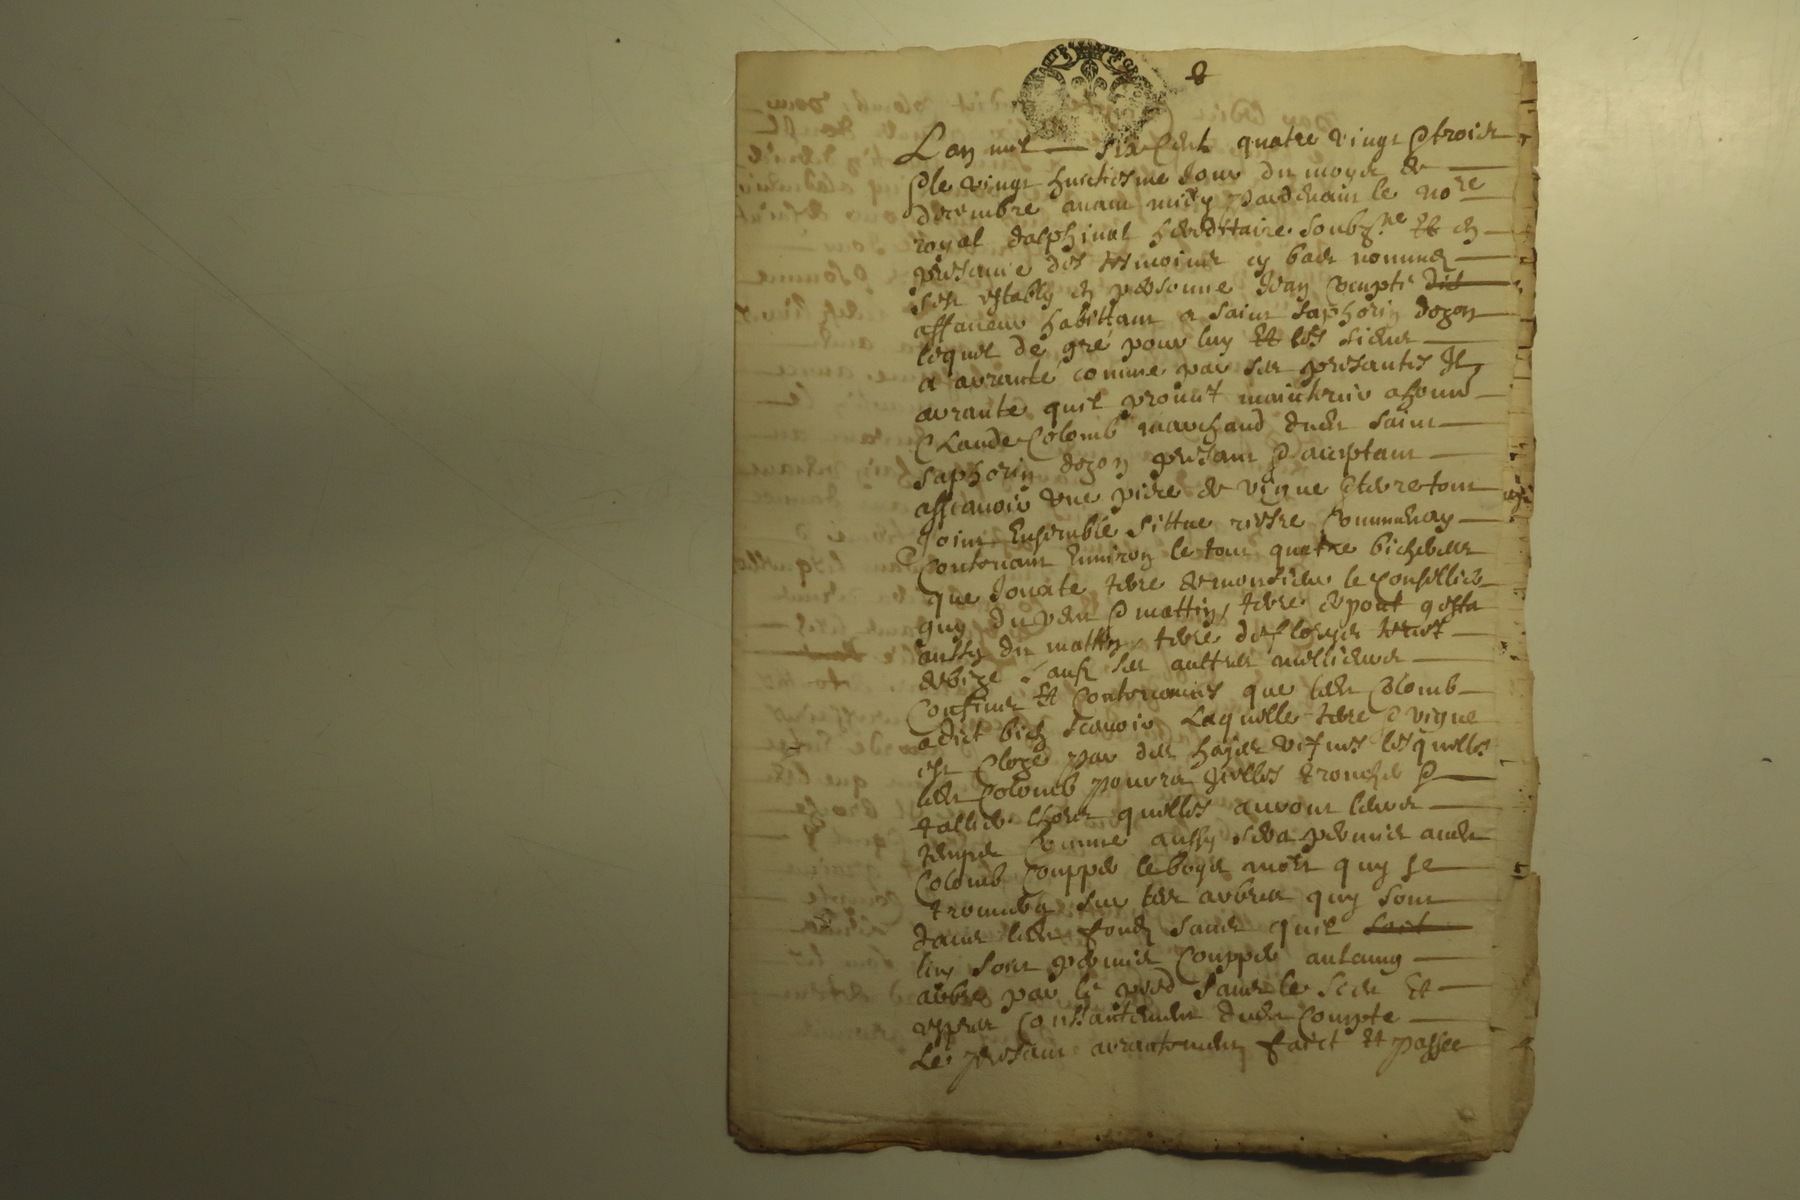 L an mil six Cent quatre vingt & trois
& le vingt huictiesme Jour du moys de
decembre avant midy pardevant le no.re
royal dalphinal hereditaire soubz.ne Et en
presance des tesmoins cy bas nommes
sest estably en personne Jean Compte dit
affaneur habittant a Saint Saphorin dozon
lequel de gre pour luy Et les siens
a arranté comme par ses presantes Il
arrante quil promet maintenir a honn.
Claude Colomb marchand dudit Saint
Saphorin dozon presant & acceptant
assçavoir une piece de vigne & terre tout
Joint Ensemble sittue riere Communay
Contenant Environ le tout quatre bicherees
que Jouxte terre de monsieur le Conseillier
du & mattin, terre
aussy du mattin, terre
de bize sauf ses auttres meilleurs
Confins Et Contenances que ledit Colomb
a dict bien sçavoir Laquelle terre & vigne
est Cloze par des hayes vifves lesquelles
ledit Colomb pourra Icelles troncher &
tallier lhors quelles auront leurs
temps Comme aussy sera permis audit
Colomb Coupper le boys mort quy se
trouvera sur les arbres quy sont
dans ledit fondz sans quil soit
luy soit permis Coupper aulcung
arbre par le pied sans le sceu Et
expres Consantement dudit Compte
Le presant arrantement faict Et passe